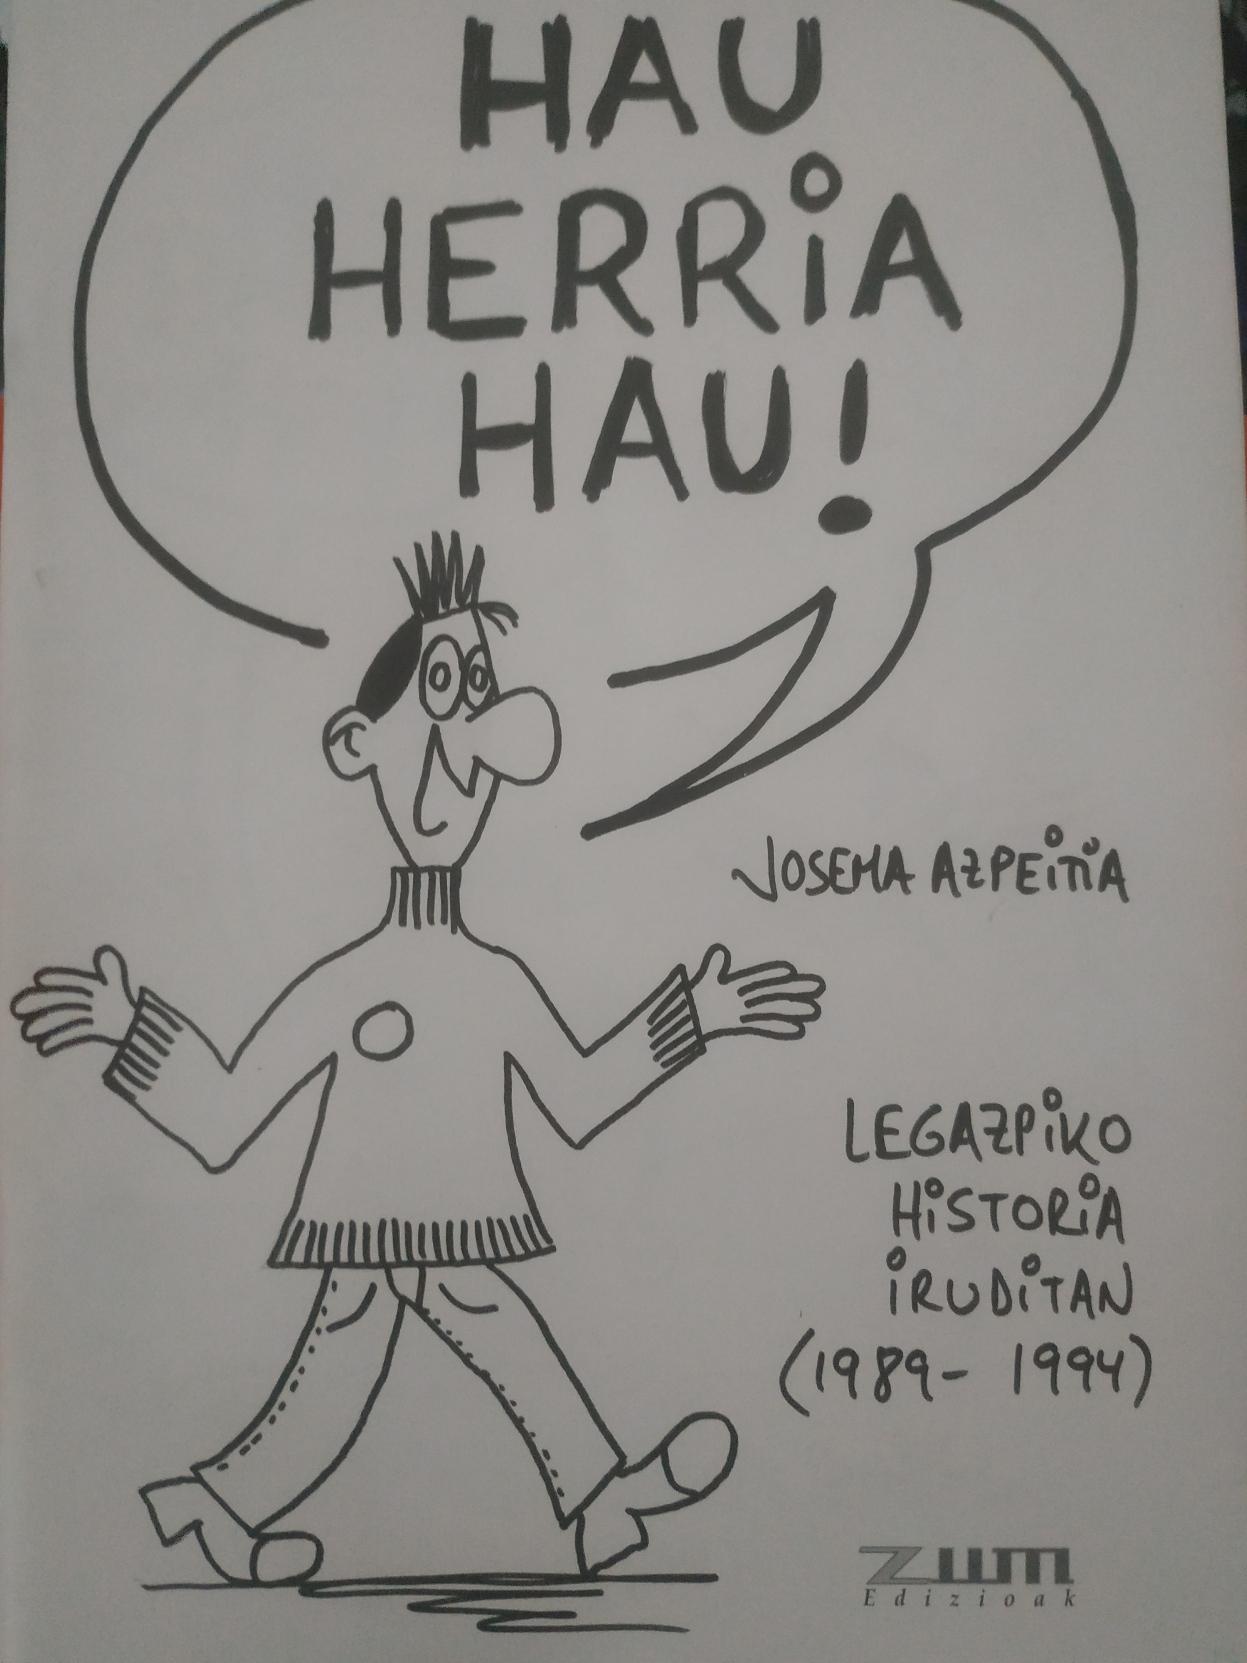 HAU
HERRiA
HAU!
JOSEMA AZPEiTiA
LEGAZPiKO
HiSTORiA
iRUDiTAN
(1989- 1994)
zum
Edizioak